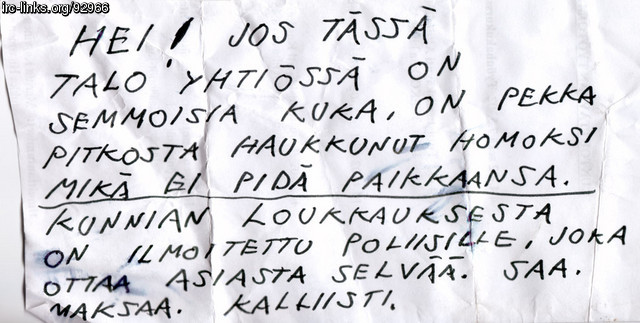 irc-links.org/92966
HEI! JOS TÄSSÄ
TALO YHTIÖSSÄ ON
SEMMOISIA KUKA, ON PEKKA
PITKOSTA HAUKKUNUT HOMOKSI
MIKÄ EI PIDÄ PAIKKAANSA.
KUNNIAN LOUKKAUKSESTA
ON ILMOITETTU POLIISILLE, JOKA
OTTAA ASIASTA SELVÄÄ. SAA.
MAKSAA. KALLIISTI.